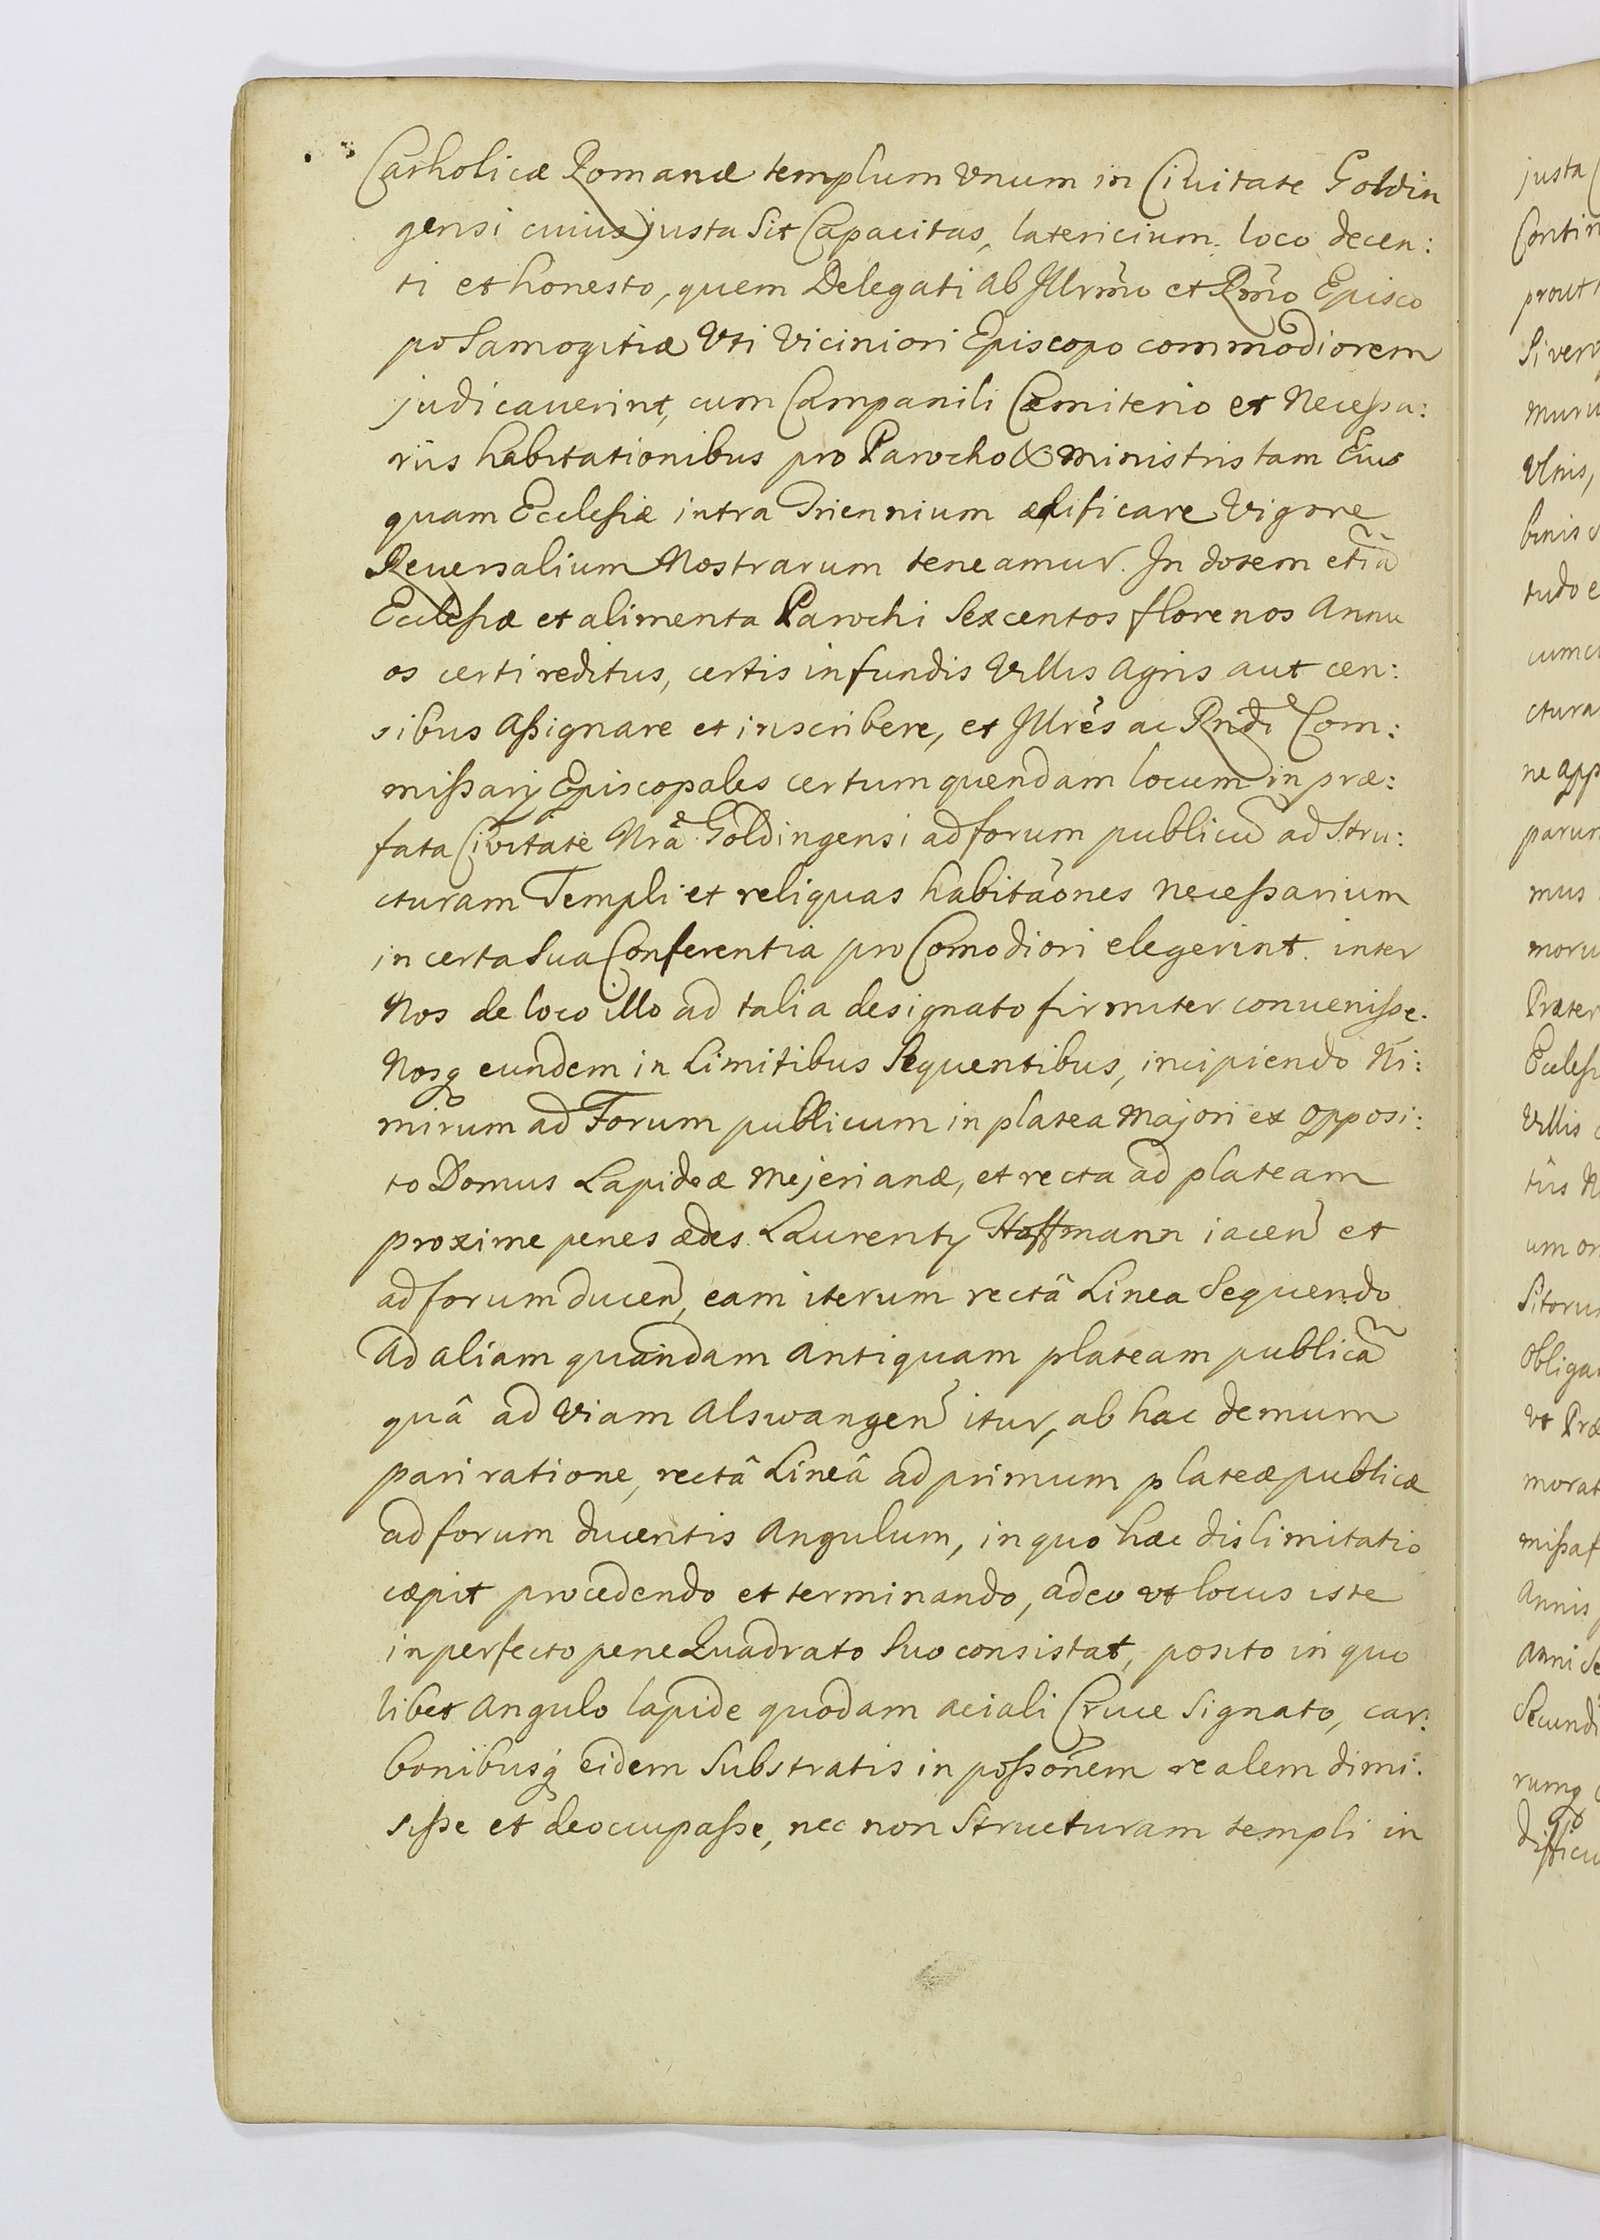 Catholicæ Romanæ templum vnum in Ciuitate Goldin
gensi cuius justa Sit Capacitas, latericium. loco decen:
ti et honesto, quem Delegati Ab Jllrm̃o et Rm̃o Episco
po Samogitiæ Vti Viciniori Episcopo commodiorem
judicauerint, cum Campanili Cæmiterio et Necessa:
riis habitationibus pro Parocho & ministris tam Eius
quam Ecclesiæ intra Triennium ædificare Vigore
Reuersalium Nostrarum teneamur. In dotem etiã
Ecclesiæ et alimenta Parochi Sexcentos florenos Annu
os certi reditus, certis in fundis Villis Agris aut cen:
sibus Assignare et inscribere, et Jllrẽs ac Rnd̃i Com:
missarij Episcopales certum quendam locum in præ:
fata Civitate Nrã Goldingensi ad forum publicũ ad Stru:
cturam Templi et reliquas habitãones necessarium
in certa Sua Conferentia pro Comodiori elegerint. inter
Nos de loco illo ad talia designato firmiter conuenisse.
Nosq eundem in Limitibus Sequentibus, incipiendo Ni:
mirum ad Forum publicum in platea Majori ex opposi:
to Domus Lapideæ Mejerianæ, et recta ad plateam
proxime penes ædes Laurentij Hoffmann iaceñ et
ad forum duceñ, eam iterum rectâ Linea Sequendo
Ad aliam quandam Antiquam plateam publicã
quâ ad Viam Alswangeñ itur, ab hac demum
pari ratione, rectâ Lineâ ad primum plateæ publicæ
ad forum ducentis Angulum, in quo hæc dislimitatio
cæpit procedendo et terminando, adeo vt locus iste
in perfecto pene Quadrato Suo consistat, posito in quo
libet Angulo lapide quodam aciali Cruce Signato, car:
bonibusq eidem Substratis in possõnem realem dimi:
sisse et deoccupasse, nec non Structuram templi in
justa
Contin
prout
Si vero
muru
Vlnis,
binis
tudo e
cumc
ctura
ne app
parum
mus
moru
Præter
Ecclesi
Villis
um or
Sitorum
Obligam
vt Præ
morat
Annis
Anni Se
Secundi
rumq